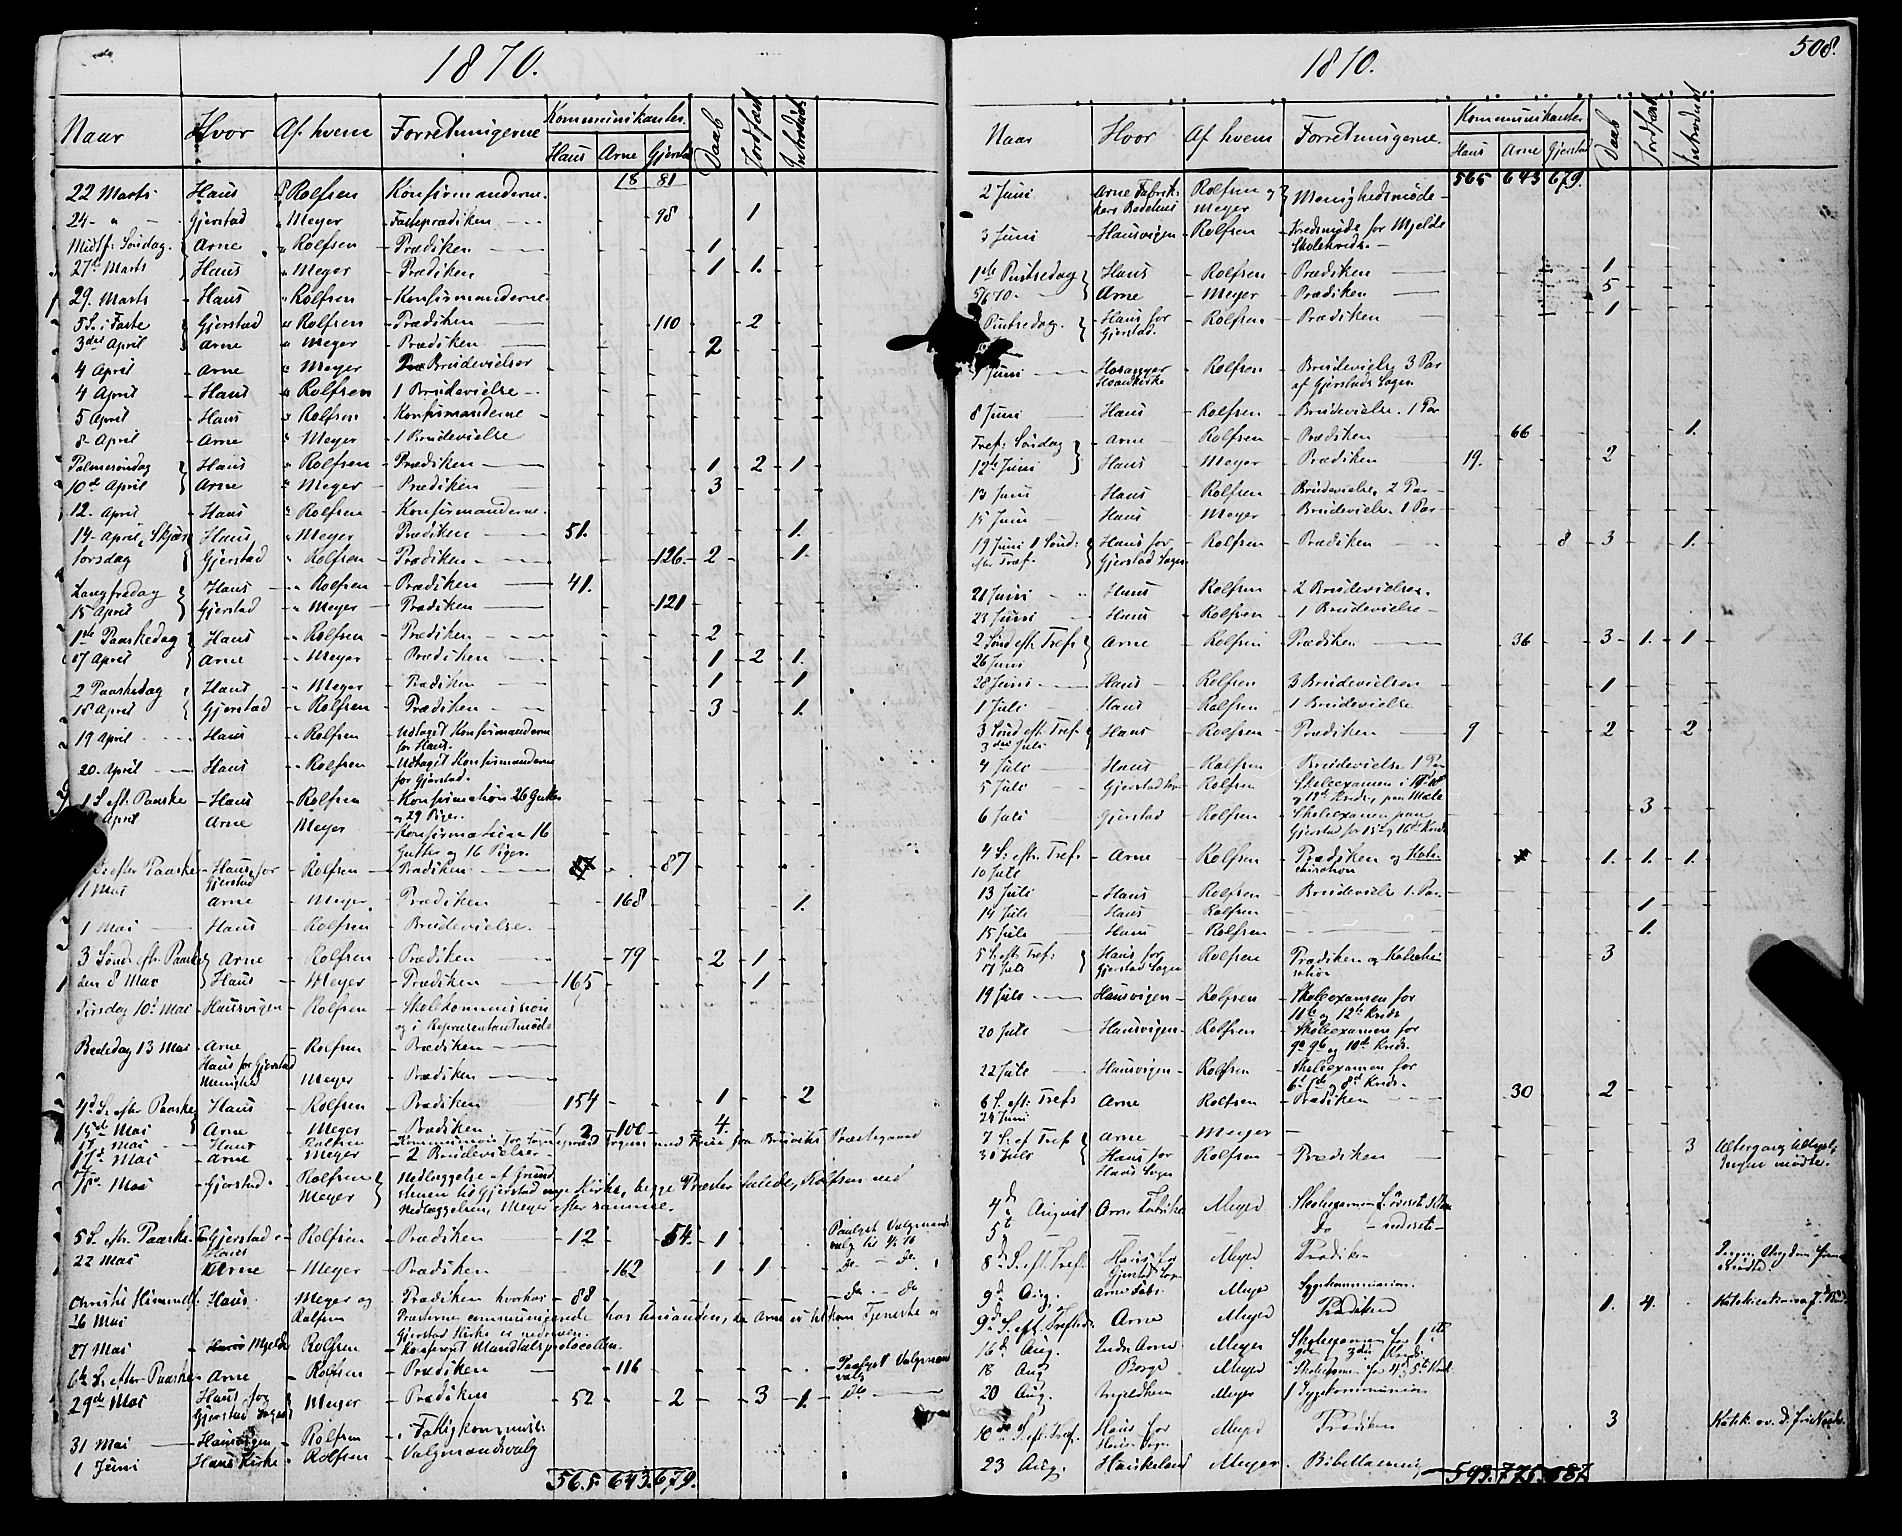 1870.
Naar Hvor Af hvem Forretningerne Kommunikanter Daab Jordfæst Introduct
Haus Arne Gjerstad
18 81
22 Marts Haus Rolfsen Konfirmanderne.
24 - " - Gjerstad " Meyer - Fasteprædiken - 98 1
Midtf: Søndag. Arne " Rolfsen - Prædiken 1
27de Marts Haus " Meyer - Prædiken 1 1.
29. Marts - Haus " Rolfsen - Konfirmanderne.
5 S. i Faste Gjerstad " Rolfsen - Prædiken 110 2
3die April - Arne " Meyer - Prædiken 2
4 April - Arne " Meyer Brudevielser
4 April - Haus " Rolfsen 1 Brudevielse
5 April - Haus " Rolfsen - Konfirmanderne
8 April - Arne " Meyer - 1 Brudevielse
Palmesøndag - Haus " Rolfsen - Prædiken 1 2 1
10de April Arne " Meyer - Prædiken 3
12 - April - Haus " Rolfsen - Konfirmanderne.
14 - April, Skjær Haus " Meyer - Prædiken 51. 1.
torsdag Gjerstad " Rolfsen - Prædiken 126. 2 1.
Langfredag - Haus " Rolfsen - Prædiken 41.
15 April Gjerstad " Meyer - Prædiken 121
1ste Paaskedag - Haus " Rolfsen - Prædiken 2
17 April - Arne " Meyer - Prædiken 1 2 1.
2 Paaskedag - Haus " Meyer - Prædiken 1 1
18 April Gjerstad " Rolfsen - Prædiken 3 1.
19 April - Haus " Rolfsen - Udtaget Konfirmanderne
for Haus.
20. April - Haus " Rolfsen - Udtaget Konfirmanderne
for Gjerstad.
1 S. eft. Paaske - Haus Rolfsen - Konfirmation 26 Gutter
og 29 Piger.
April Arne Meyer - Konfirmation 16
Gutter og 16 Piger.
efter Paaske - Haus for Rolfsen - Prædiken 87
Gjerstad
1 Mai Arne - Meyer - Prædiken 168 1.
1 Mai - Haus - Rolfsen - Brudevielse.
3 Sønd. eft. Paaske Arne - Rolfsen - Prædiken 79 2 1
den 8 Mai Haus - Meyer - Prædiken 165 1
Tirsdag 10. Mai - Hausvigen - Rolfsen - Skolekommission
og i Repræsentantmøde
Bededag 13 Mai - Arne - Rolfsen - Prædiken
Haus for Gjerstad
Menighed Meyer - Prædiken
4de S. efter Paaske Haus - Rolfsen - Prædiken 154 1 2
15de Mai Arne - Meyer - Prædiken 2 100 4.
17 Mai - Haus - Rolfsen
17 Mai - Arne - Meyer - 2 Brudevielser
Mai - Gjerstad. - Rolfsen Nedlæggelse af Grund
Meyer stenen til Gjerstad nye Kirke, begge Præster talede, Rolfsen ved
Nedlæggelsen, Meyer efter samme.
5 S. eft. Paaske Gjerstad - Rolfsen - Prædiken 12 54. 1 Paalyst Valgmands
valg til
Haus
22 Mai Arne - Meyer - Prædiken 162 1 1 - Do - Do
Christi Himmelf. Haus. - Meyer og - Prædiken hvorhos 88 - Do - Do
26 Mai Rolfsen
Gjerstad Kirke er nedreven.
27 Mai Mjelde Rolfsen
6te S. efter Paaske - Arne - Rolfsen - Prædiken 116 - Paalyst Valgmands
valg
29de Mai Haus for Meyer - Prædiken 52 2 3 1. Do
Gjerstad Sogn
31 Mai - Hausvigen - Rolfsen - i Fattigkommiss:
1 Juni Haus Kirke - Rolfsen - Valgmandsvalg
565. 643. 679.
1870. 508.
Naar Hvor Af hvem Forretningerne. Kommunikanter Daab Jordfæst Introduct
Haus Arne Gjerstad
565 643 679.
2 Juni Arne Fabrik- Rolfsen og Menighedsmøde -
kers Bedehus Meyer
3 Juni - Hausvigen - Rolfsen - Kredsmøde for Mjelde
Skolekreds. -
1ste Pintsedag - Haus - Rolfsen - Prædiken 1
5/6 70. - Arne - Meyer - Prædiken 5
Pintsedag. - Haus for - Rolfsen - Prædiken 1
Gjerstad.
Juni - Hosanger Rolfsen - Brudevielse 3 Par
Hovedkirke af Gjerstads Sogn
8 Juni Haus - Rolfsen - Brudevielse. 1 Par
Tref. Søndag - Arne - Rolfsen - Prædiken 66 1.
12te Juni - Haus - Meyer - Prædiken 19. 2
13 Juni - Haus - Rolfsen - Brudevielse, 2 Par -
15 Juni - Haus - Meyer - Brudevielse 1 Par
19 Juni 1 Sønd: Haus for - Rolfsen - Prædiken 8 3 1.
efter Tref. Gjerstad Sogn
21 Juni - Haus Rolfsen - 2 Brudevielser.
23 Juni - Haus - Rolfsen - 1 Brudevielse -
2 Sønd eft. Tref. Arne - Rolfsen - Prædiken 36 3 1. 1
26 Juni
28 Juni - Haus - Rolfsen 3 Brudevielser 1
1 Juli - Haus - Rolfsen - 1 Brudevielse
3 Sønd eft. Tref. - Haus - Rolfsen - Prædiken 9 2 2
3die Juli
4 Juli - Haus - Rolfsen Brudevielse 1 Par
5 Juli - Gjerstad - Rolfsen - Skoleexamen i
6 Juli - Gjerstad - Rolfsen - Skoleexamen paa 3
Gjerstad for 15de og 16de Kreds
4 S. eft. Tref. - Arne - Rolfsen - Prædiken og Kate- 1. 1. 1.
10 Juli chisation
13 Juli - Haus - Rolfsen - Brudevielse 1 Par
14 Juli - Haus - Rolfsen 1.
15 Juli - Haus - Rolfsen 1.
5 S. eft. Tref. Haus for Rolfsen Prædiken og Katechi- 3
17 Juli Gjerstad Sogn sation
19 Juli - Hausvigen - Rolfsen - Skoleexamen for
11te og 12te Kreds
20 Juli - Hausvigen - Rolfsen - Skoleexamen for
9a 9b og 10de Kreds.
22 Juli - Hausvigen - Rolfsen - Skoleexamen for
6te 7de 8de Kreds.
6 S. eft. Tref. Arne - Rolfsen - Prædiken 30 2
24 Juni
7 S. ef Tref. Arne - Meyer -
31 Juli - Haus for Rolfsen - Prædiken 3 Altergang tillyst,
Haus Sogn Ingen mødte.
4de August Arne Fabrikker Meyer
5te Do -
8de S. eft. Tref. Haus for Meyer Prædiken
Gjerstad Sogn
9de Aug. Arne Fabr. Meyer Sygekommunion.
9de S. eft. Trefold. Arne Meyer Prædiken 1. 4.
16de Aug. Indre Arne Meyer Skoleexamen for 1ste
2den 3die Kreds
18 Aug Borge Meyer Skoleexamen for 4de 5te Kreds
20 Aug. Meyer 1 Sygekommunion
10de S. eft. Tref. Haus for Meyer Prædiken 3
Haus Sogn
23 Aug. Haukeland Meyer.
593. 775. 687.